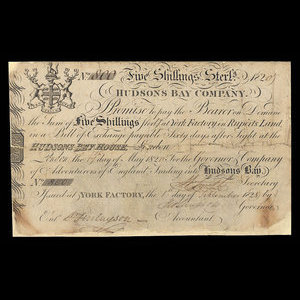 Five Shillings Sterlg.
HUDSONS BAY COMPANY.
I Promise to pay the Bearer on Demand
the Sum of Five Shillings Sterlg. at York Factory in Ruperts Land,
in a Bill of Exchange payable Sixty days after Sight at the
HUDSONS BAY HOUSE, London
London the day of May 1820 For the Governor & Company
of Adventurers of England trading into Hudsons Bay.
Secretary
Issued at YORK FACTORY, the day of
Governor
Entd. Accountant